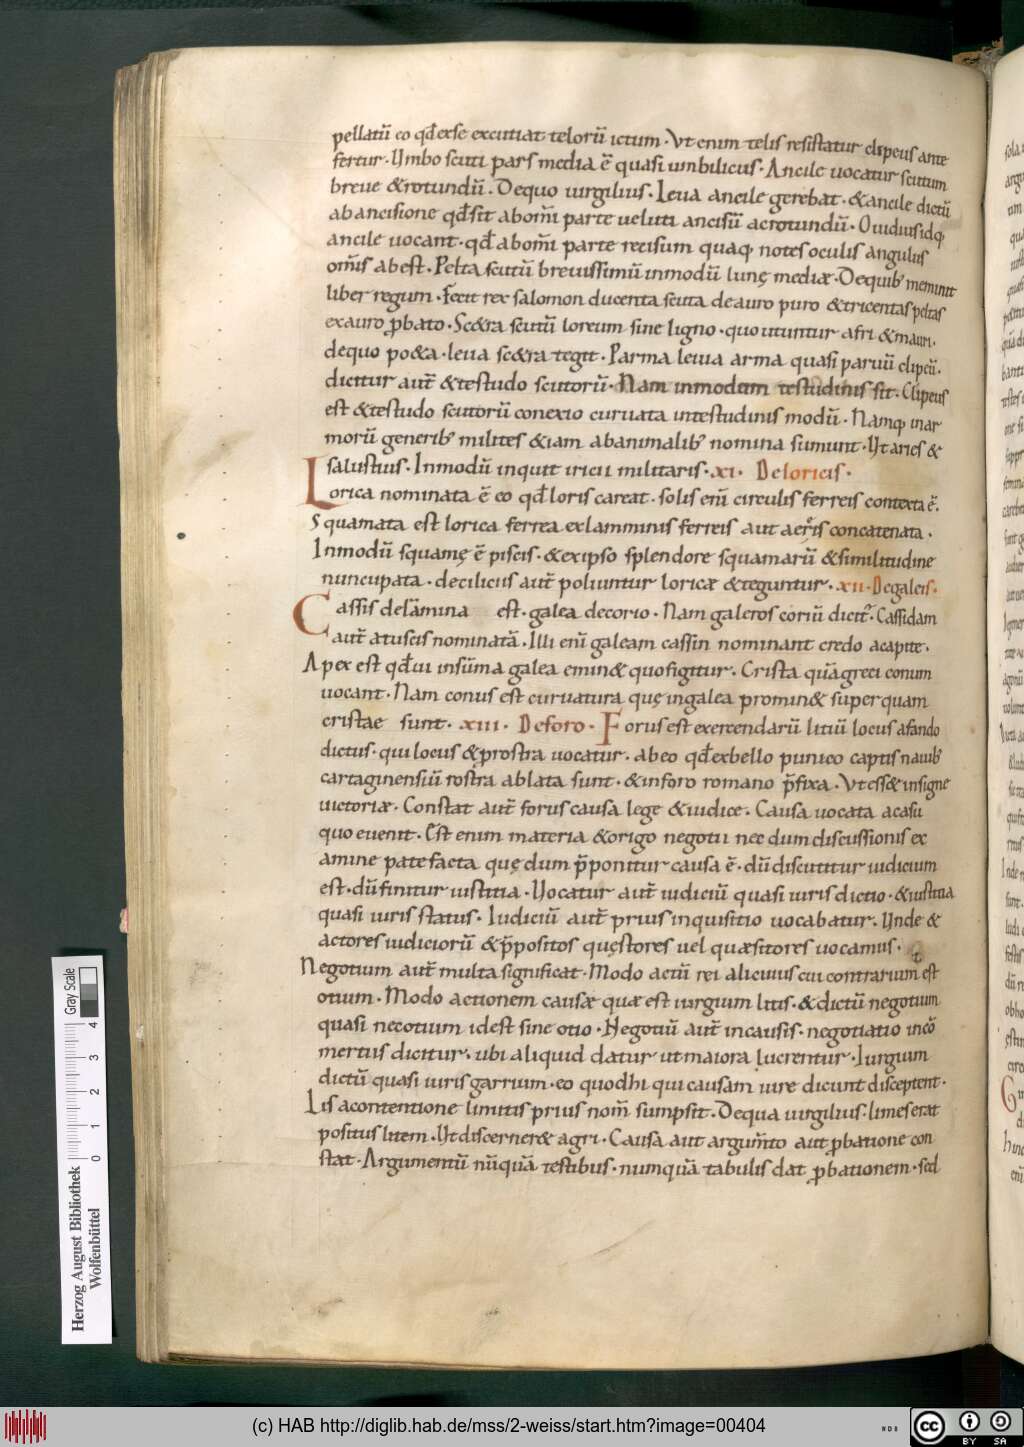 pellatū eo qđexse excutiat telorū ictum · Vt enim telis resistatur clipeus ante
fertur · Vmbo scuti pars media ē quasi umbilicus · Ancile uocatur scutum
breue &rotundū · Dequo uirgilius · Leua ancile gerebat · &ancile dictū
abancisione qđsit abom̄i parte ueluti ancisū acrotundū · Ouidiusidq;
ancile uocant · qđ abom̄i parte recisum quaq; notes oculis angulus
om̄is abest · Pelta scutū breuissimū inmodū lunę mediæ · Dequib; meminit
liber regum · Fecit rex salomon ducenta scuta deauro puro &tricentas peltas
exauro ꝓbato · Sc&ra scutū loreum sine ligno · quo utuntur afri &mauri ·
dequo po&a · leua sc&ra tegit · Parma leuia arma quasi paruū clipeū ·
dicitur aut̄ &testudo scutorū · Nam inmodum testudinis fit · Clipeus
est &testudo scutorū conexio curuata intestudinis modū · Namq; inar
morū generib; milites &iam abanimalib; nomina sumunt · Vt aries &
salustius · Inmodū inquit iricii militaris · xi · De loricis ·
Lorica nominata ē eo qđ loris careat · solis eni̅ circulis ferreis contexta ē ·
Squamata est lorica ferrea exlamminis ferreis aut aeris concatenata ·
Inmodū squamę ē piscis · &exipso splendore squamarū &similitudine
nuncupata · decilicius aut̄ poliuntur loricæ &teguntur · xii · Degaleis ·
Cassis delamina est · galea decorio · Nam galeros coriū dicit̄ · Cassidam
aut̄ atuscis nominatā · Illi eni̅ galeam cassin nominant credo acapite ·
Apex est qđ ui insūma galea emin& quofigitur · Crista quāgreci conum
uocant · Nam conus est curuatura quę ingalea promin& superquam
cristae sunt · xiii · Deforo · Forus est exercendarū litiū locus afando
dictus · qui locus &prostra uocatur · abeo qđexbello punico captis nauib;
cartaginensiū rostra ablata sunt · &inforo romano p̄fixa · Vt ess& insigne
uictoriæ · Constat aut̄ forus causa lege &iudice · Causa uocata acasu
quo euenit · Est enim materia &origo negotii nec dum discussionis ex
amine patefacta quę dum p̄ponitur causa ē · dū discutitur iudicium
est · dū finitur iustitia · Vocatur aut̄ iudiciū quasi iuris dictio · &iustitia
quasi iuris status · Iudiciū aut̄ prius inquisitio uocabatur · Vnde &
actores iudiciorū &p̄positos quęstores uel quæsitores uocamus ·
Negotium aut̄ multa significat · Modo actū rei alicuius cui contrarium est
otium · Modo actionem causæ quæ est iurgium litis · &dictū negotium
quasi necotium idest sine otio · Negotiū aut̄ incausis · negotiatio incō
mertiis dicitur · ubi aliquid datur utmaiora lucrentur · Iurgium
dictū quasi iuris garrium · eo quodhi qui causam iure dicunt disceptent ·
Lis acontentione limitis prius nom̄ sumpsit · Dequa uirgilius · limes erat
positus litem · Vt discerner& agri · Causa aut argum̄to aut ꝓbatione con
stat · Argumentū nūquā testibus · numquā tabulis dat ꝓbationem · sed
Herzog August Bibliothek
Wolfenbüttel
0 1 2 3 4
Gray Scale
(c) HAB http://diglib.hab.de/mss/2-weiss/start.htm?image=00404
cc BY SA